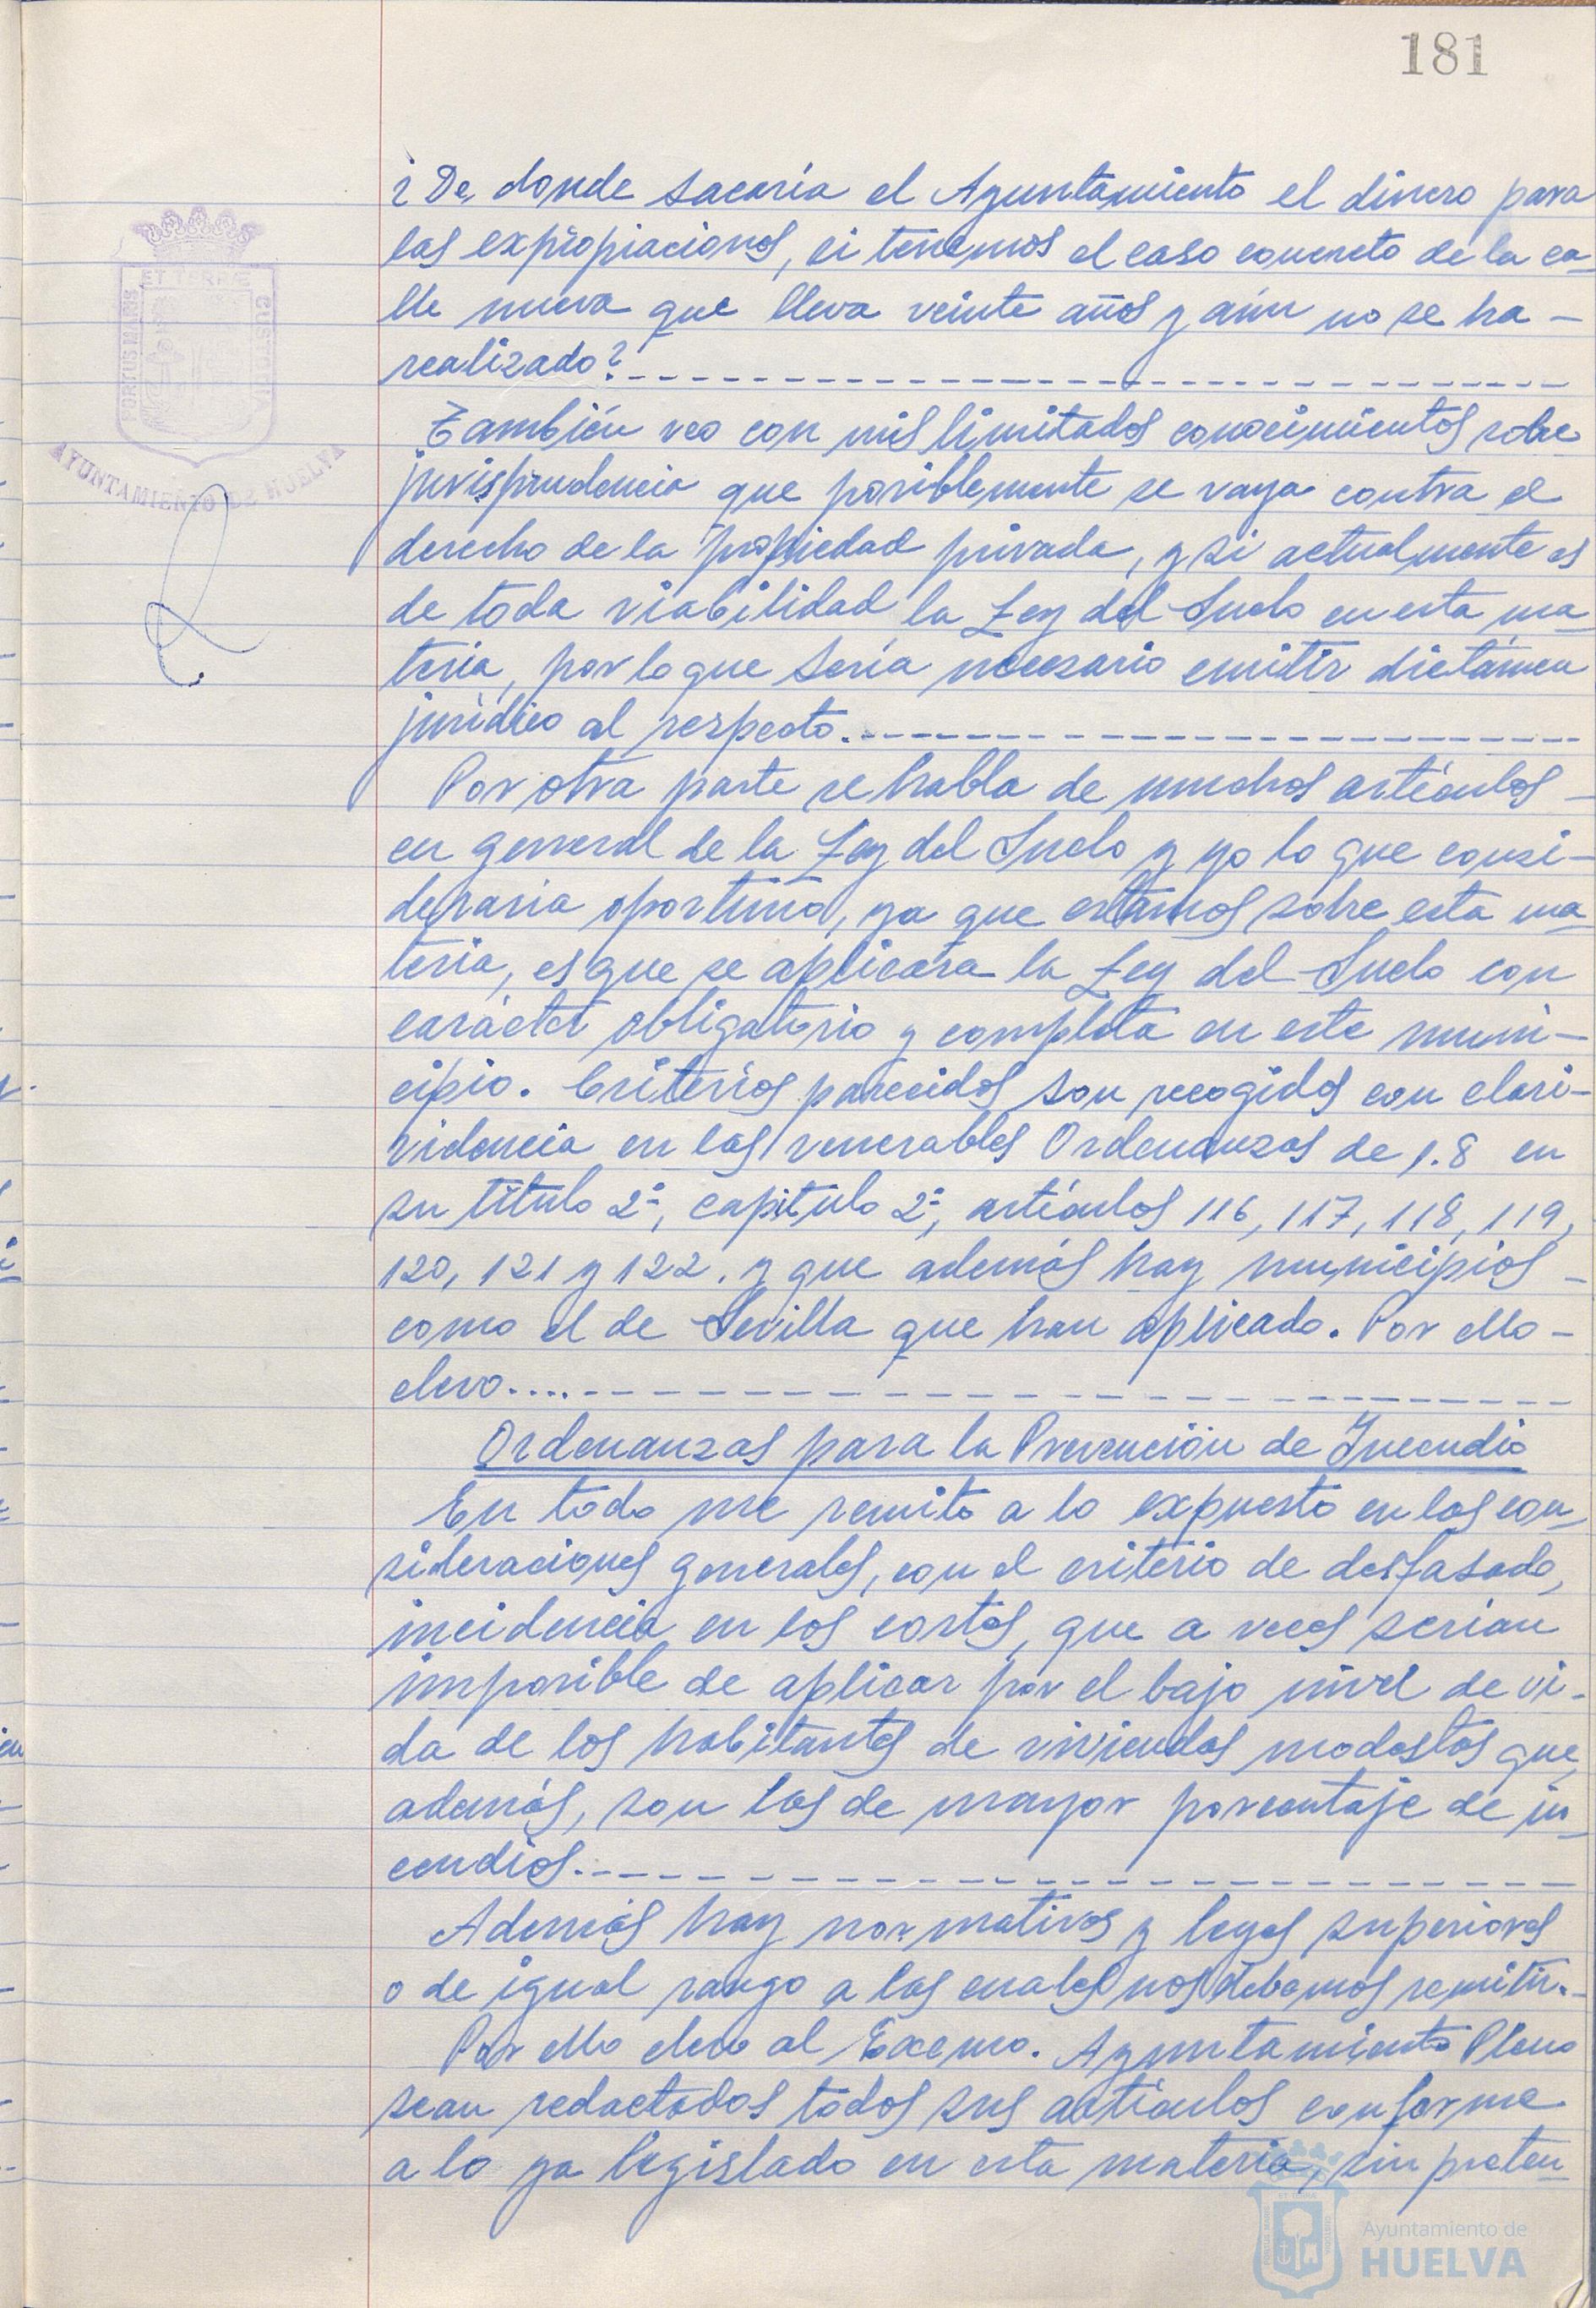 181
¿De donde sacaría el Ayuntamiento el dinero para
las expropiaciones, si tenemos el caso concreto de la ca-
lle nueva que lleva veinte años y aún no se ha -
realizado?
También veo con mis limitados conocimientos sobre
jurisprudencia que posiblemente se vaya contra el
derecho de la propiedad privada, y si actualmente es
de toda viabilidad la Ley del Suelo en esta ma-
teria, por lo que sería necesario emitir dictámen
jurídico al respecto.
Por otra parte se habla de muchos artículos -
en general de la Ley del Suelo y yo lo que consi-
deraria oportuno, ya que estamos sobre esta ma-
teria, es que se aplicara la Ley del Suelo con
carácter obligatorio y completa en este muni-
cipio. Criterios parecidos son recogidos con clari-
videncia en las venerables Ordenanzas de 1.8 en
su título 2º, capitulo 2º, artículos 116, 117, 118, 119,
120, 121 y 122. y que además hay municipios -
como el de Sevilla que han aplicado. Por ello -
elevo....
Ordenanzas para la Prevención de Incendio
En todo me remito a lo expuesto en las con-
sideraciones generales, con el criterio de desfasado,
incidencia en los costes, que a veces serian
imposible de aplicar por el bajo nivel de vi-
da de los habitantes de viviendas modestas que,
además, son las de mayor porcentaje de in-
cendios.
Además hay normativas y leyes superiores
o de igual rango a las cuales nos debemos remitir.-
Por ello elevo al Excmo. Ayuntamiento Pleno
sean redactados todos sus artículos conforme
a lo ya legislado en esta materia, sin preten-
ET TERRE
PORTUS MARIS
CUSTODIA
AYUNTAMIENTO DE HUELVA
Ayuntamiento de
HUELVA